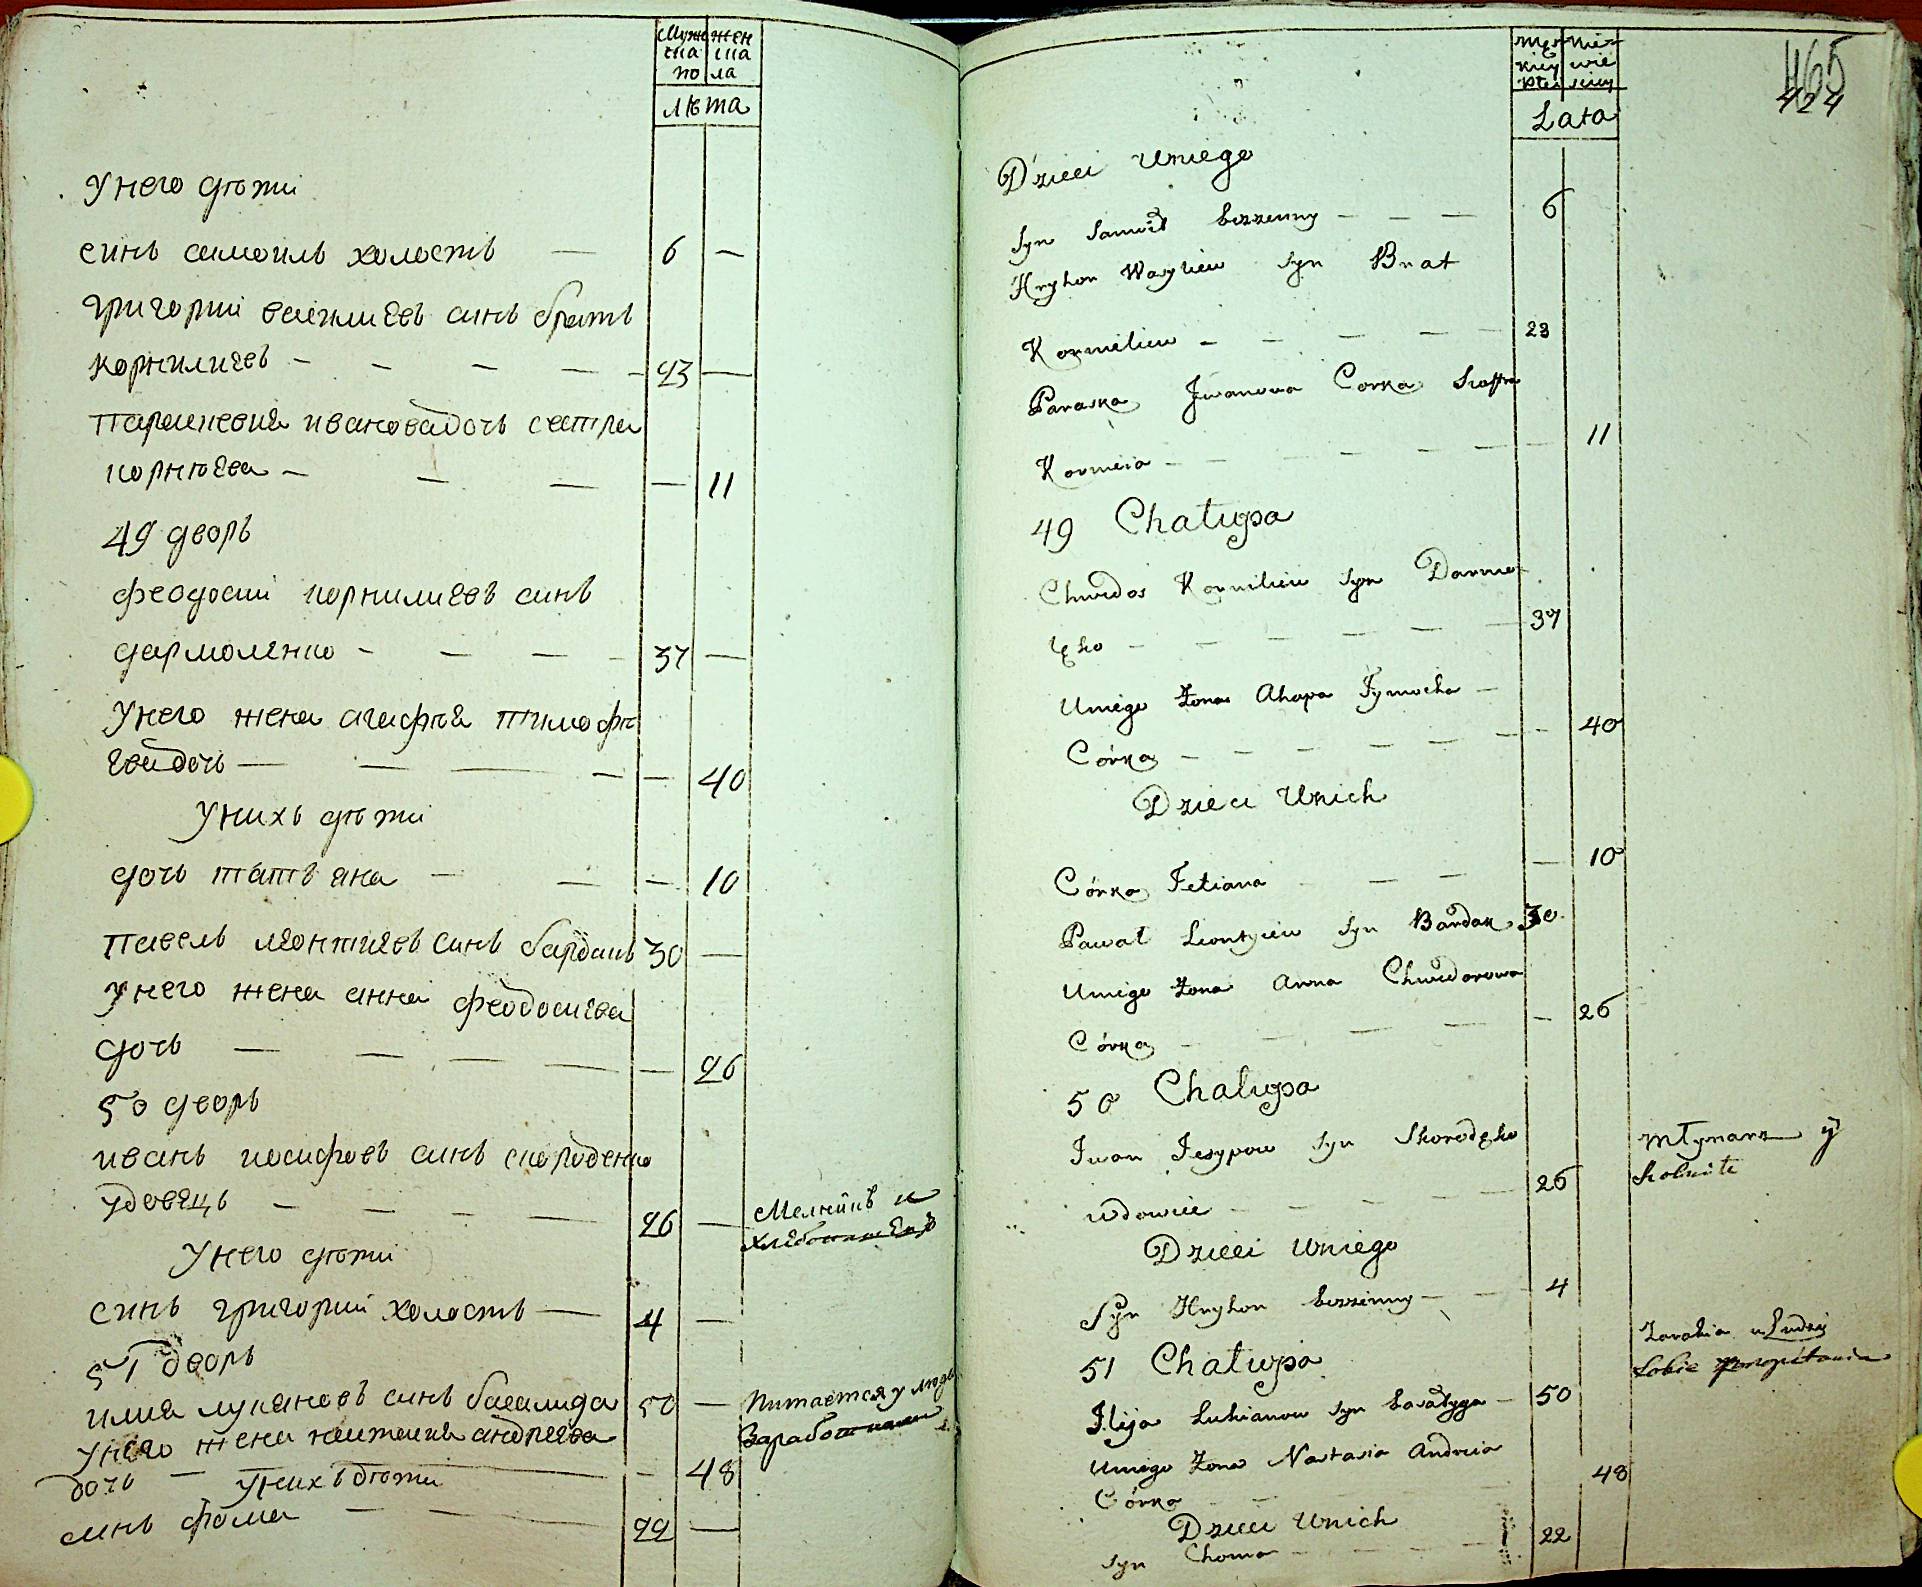 Мужеска
женска
по ла
лѣта
У него дѣти
синъ самоилъ холостъ — 6 —
григорий василиевъ синъ братъ
корнилиевъ — — — — — 23 —
параскевия ивановадочь сестра
корнѣева — — — — 11
49 дворъ
феодосий корнилиевъ синъ
дармоленко — — — — 37 —
У него жена агафия тимофѣ
евадочь — — — — — 40
У нихъ дѣти
дочь татъяна — — — 10
павелъ леонтиевъ синъ барданъ 30 —
У него жена анна феодосиева
дочь — — — — — 26
50 дворъ
иванъ иосифовъ синъ скороденко
удовецъ — — — — 26 —
Мелникъ и
У него дѣти
синъ григорий холостъ — 4 —
51 дворъ
илия лукяновъ синъ басалига 50 —
Питается у людей
Заработками
У него жена настасия андреева
дочь — — 48
У нихъ дѣти
синъ фома — — 22 —
męs kiey płci
nie wie sciey
Lata
465
424
Dzieci Uniego
Syn Samoił bezzenny — — — 6
Hryhor Wasyliew Syn Brat
Korniliew — — — — 23
Paraska Jwanowa Corka Siostra
Korneia — — — — — — 11
49 Chałupa
Chwedos Korniliew Syn Darmo
lęko — — — — — — 37
Uniego Żona Ahapa Tymocha —
Córka — — — — — — — 40
Dzieci Unich
Córka Tetiana — — — 10
Paweł Leontyiew Syn Bardak 30
Uniego Żona Anna Chwedorowa
Córka — — — — 26
50 Chałupa
Iwan Jesypow Syn Skorodęko
wdowiec — — — — 26
Młynarz y
Dzieci Uniego
Syn Hryhor bezzenny — — 4
51 Chałupa
Zarabia u Ludzi
Sobie
Ilija Lukianow Syn Basałyga — 50
Uniego Żona Nastasia Andreia
Córka — — — 48
Dzieci Unich
Syn Choma — — — — 22